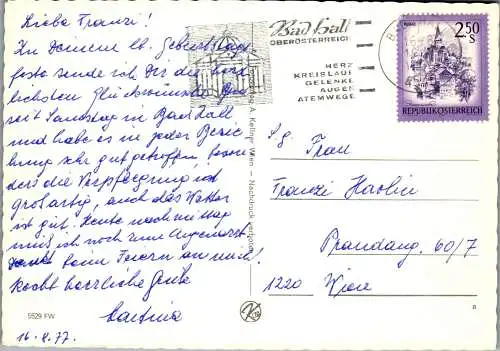 Liebe Franzi!
Zu Deinem lb. Geburtstags-
feste sende ich Dir die herz-
lichsten Glückwünsche. Bin
seit Samstag in Bad Hall
und habe es in jeder Bezie
hung sehr gut getroffen, beson
ders die Verpflegung ist
großartig, auch das Wetter
ist gut. Heute nachmittag
muß ich noch zum Augenarzt.
beim Feiern an mich!
Recht herzliche Grüße
16.8.77.
5529 FW
A. Kellner, Wien — Nachdruck verboten
Bad Hall
OBERÖSTERREICH
HERZ
KREISLAUF
GELENKE
AUGEN
ATEMWEGE
2.50
S
REPUBLIK ÖSTERREICH
Frau
Franzi
60/7
1220 Wien